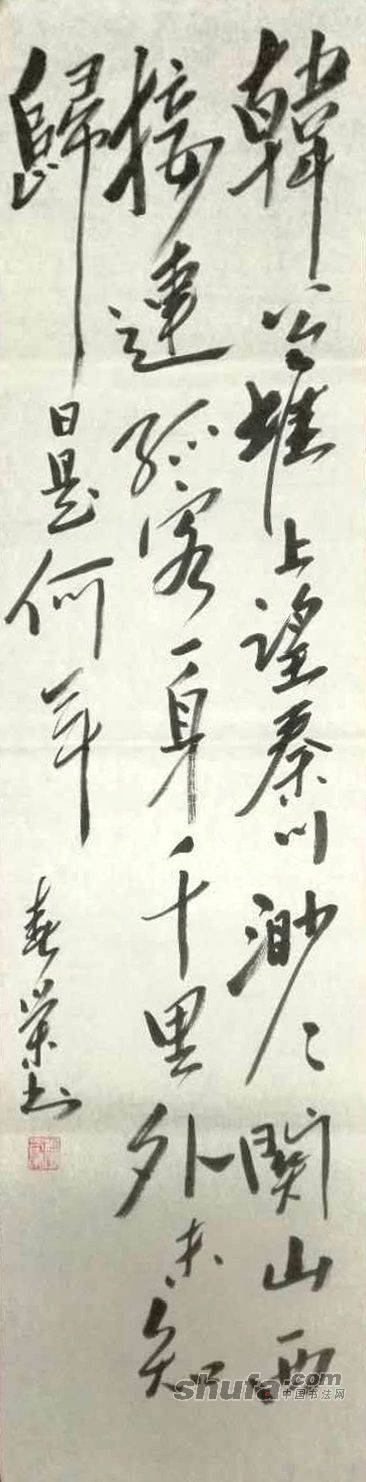 韓公堆上望秦川渺々關山西
接連孤客一身千里外未知
歸日是何年
春榮书
shufa.com
中国书法网